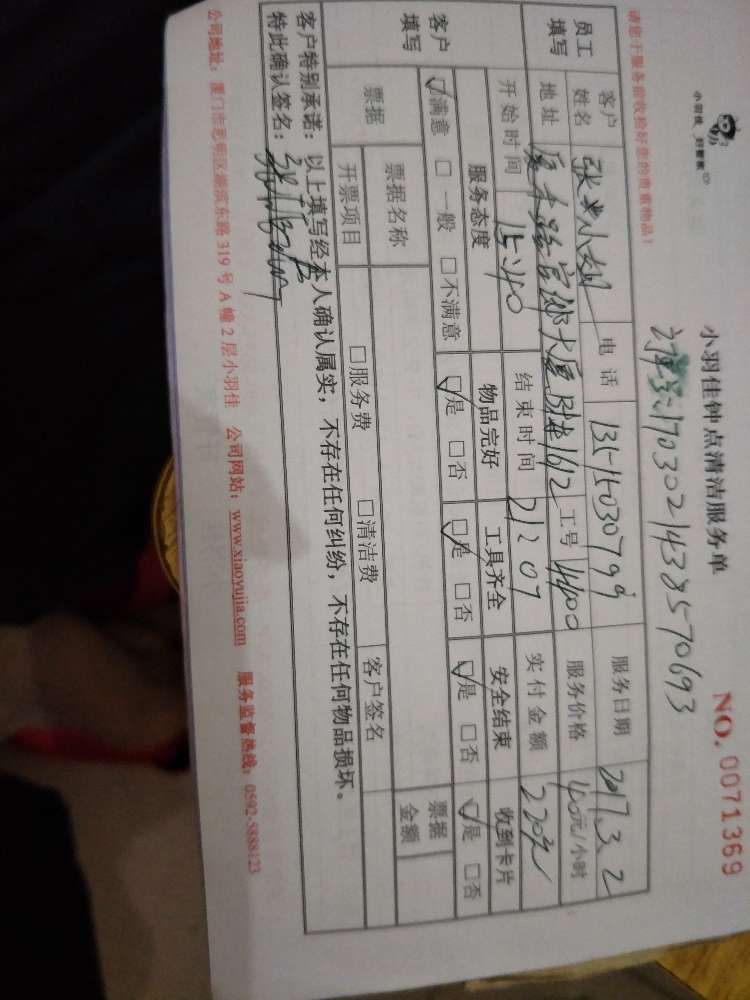 小羽佳 好管家
小羽佳钟点清洁服务单
NO. 0071369
请您于服务前收捡好您的贵重物品！
1703021438570693
员工填写 客户姓名 张小姐 电话 服务日期 2017.3.2
地址 大厦 1612 工号 4400 服务价格 40元/小时
开始时间 15:40 结束时间 21207 实付金额 220元
客户填写 服务态度 物品完好 工具齐全 安全结束 收到卡片
☑满意 □一般 □不满意 ☑是 □否 ☑是 □否 ☑是 □否 ☑是 □否
票据 票据名称 客户签名 票据金额
开票项目 □服务费 □清洁费
客户特别承诺：以上填写经本人确认属实，不存在任何纠纷，不存在任何物品损坏。
特此确认签名：
公司地址：厦门市思明区湖滨东路 319 号 A 幢 2 层小羽佳 公司网站：www.xiaoyujia.com 服务监督热线：0592-5888123